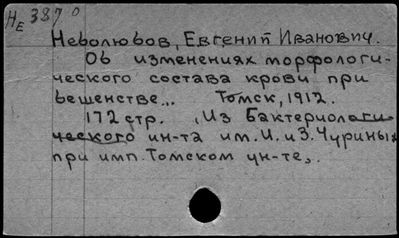 НЕ 3870
Неболюбов, Евгений Иванович.
Об изменениях морфологи-
ческого состава крови при
бешенстве... Томск, 1912.
172 стр. „Из Бактериологи-
ческого ин-та им. И. и З. Чуриных
при имп. Томском ун-те„.